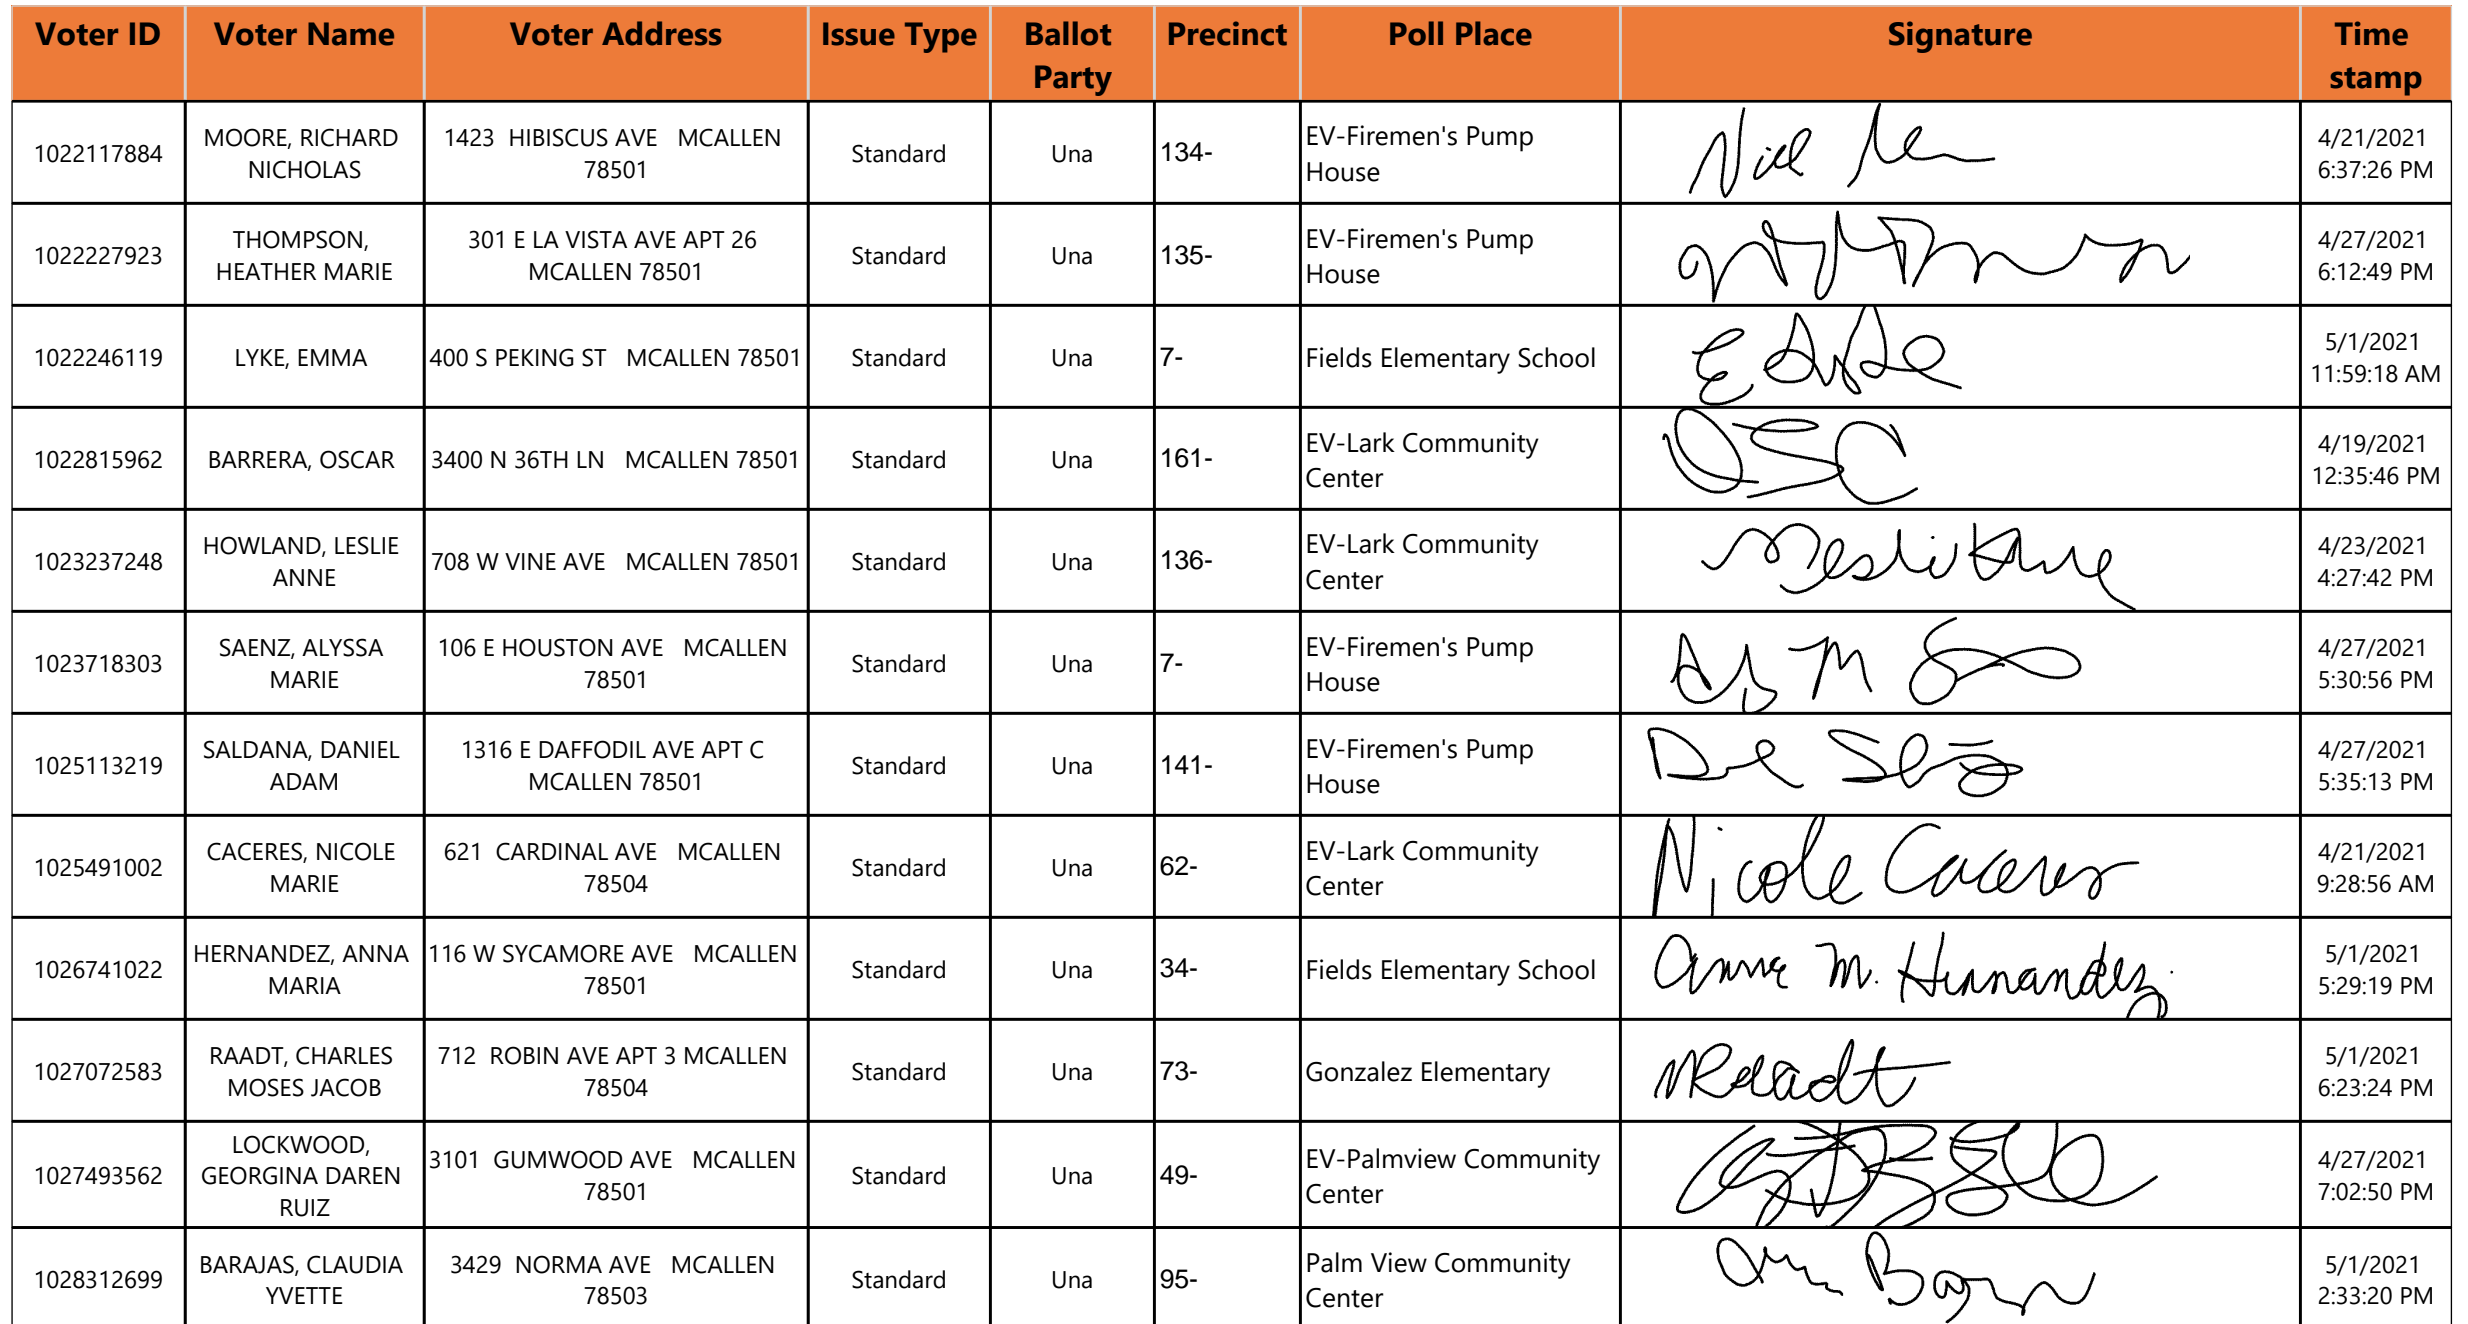 Voter ID Voter Name Voter Address Issue Type Ballot Party Precinct Poll Place Signature Time stamp
1022117884 MOORE, RICHARD NICHOLAS 1423 HIBISCUS AVE MCALLEN 78501 Standard Una 134- EV-Firemen's Pump House 4/21/2021 6:37:26 PM
1022227923 THOMPSON, HEATHER MARIE 301 E LA VISTA AVE APT 26 MCALLEN 78501 Standard Una 135- EV-Firemen's Pump House 4/27/2021 6:12:49 PM
1022246119 LYKE, EMMA 400 S PEKING ST MCALLEN 78501 Standard Una 7- Fields Elementary School 5/1/2021 11:59:18 AM
1022815962 BARRERA, OSCAR 3400 N 36TH LN MCALLEN 78501 Standard Una 161- EV-Lark Community Center 4/19/2021 12:35:46 PM
1023237248 HOWLAND, LESLIE ANNE 708 W VINE AVE MCALLEN 78501 Standard Una 136- EV-Lark Community Center 4/23/2021 4:27:42 PM
1023718303 SAENZ, ALYSSA MARIE 106 E HOUSTON AVE MCALLEN 78501 Standard Una 7- EV-Firemen's Pump House 4/27/2021 5:30:56 PM
1025113219 SALDANA, DANIEL ADAM 1316 E DAFFODIL AVE APT C MCALLEN 78501 Standard Una 141- EV-Firemen's Pump House 4/27/2021 5:35:13 PM
1025491002 CACERES, NICOLE MARIE 621 CARDINAL AVE MCALLEN 78504 Standard Una 62- EV-Lark Community Center Nicole Caceres 4/21/2021 9:28:56 AM
1026741022 HERNANDEZ, ANNA MARIA 116 W SYCAMORE AVE MCALLEN 78501 Standard Una 34- Fields Elementary School Anna M. Hernandez 5/1/2021 5:29:19 PM
1027072583 RAADT, CHARLES MOSES JACOB 712 ROBIN AVE APT 3 MCALLEN 78504 Standard Una 73- Gonzalez Elementary 5/1/2021 6:23:24 PM
1027493562 LOCKWOOD, GEORGINA DAREN RUIZ 3101 GUMWOOD AVE MCALLEN 78501 Standard Una 49- EV-Palmview Community Center 4/27/2021 7:02:50 PM
1028312699 BARAJAS, CLAUDIA YVETTE 3429 NORMA AVE MCALLEN 78503 Standard Una 95- Palm View Community Center 5/1/2021 2:33:20 PM